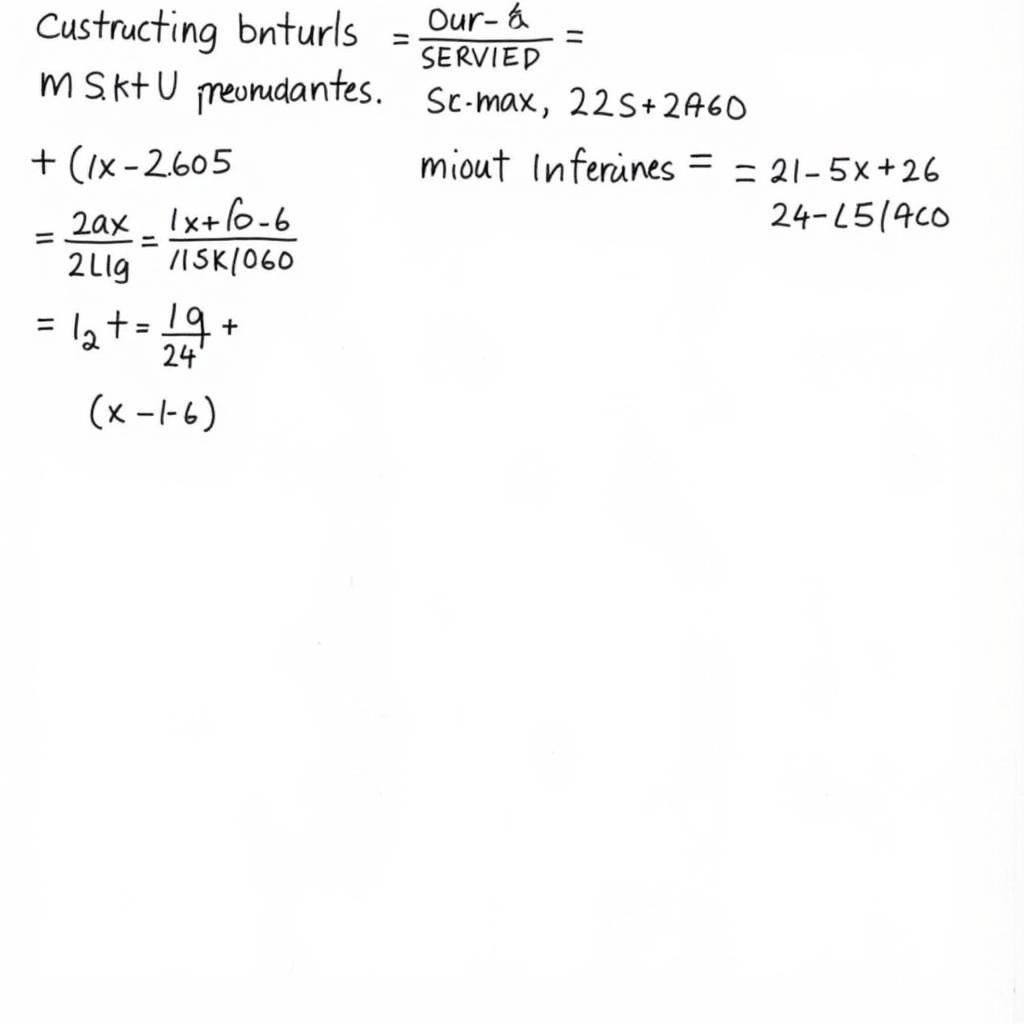 Custructing bnturls = Our- & / SERVIED =
m S.k+U preurudantes. Sc-max, 22S+2A60
+ (1x-2.605 miout Inferiines = = 21-5x+26
24-L5/ACO
= 2ax / 2L1g = 1x+6-6 / 11SK/060
= 12 += 19 / 24 +
(x -1-6)